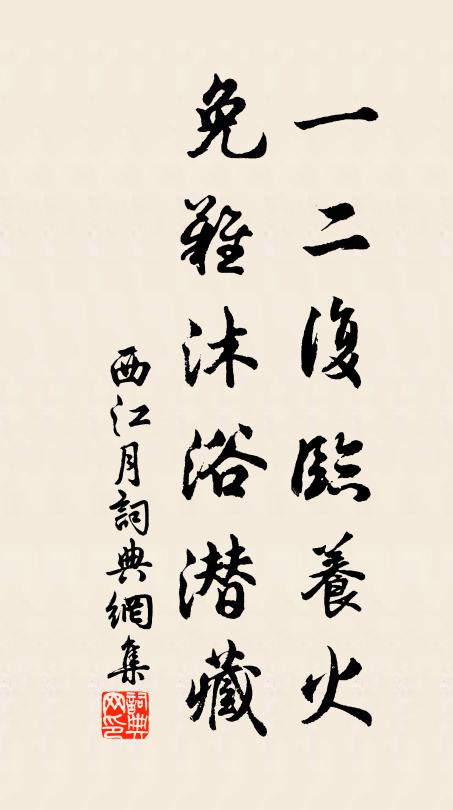 一二復臨養火
免難沐浴潜藏
西江月詞典網集
詞典網印